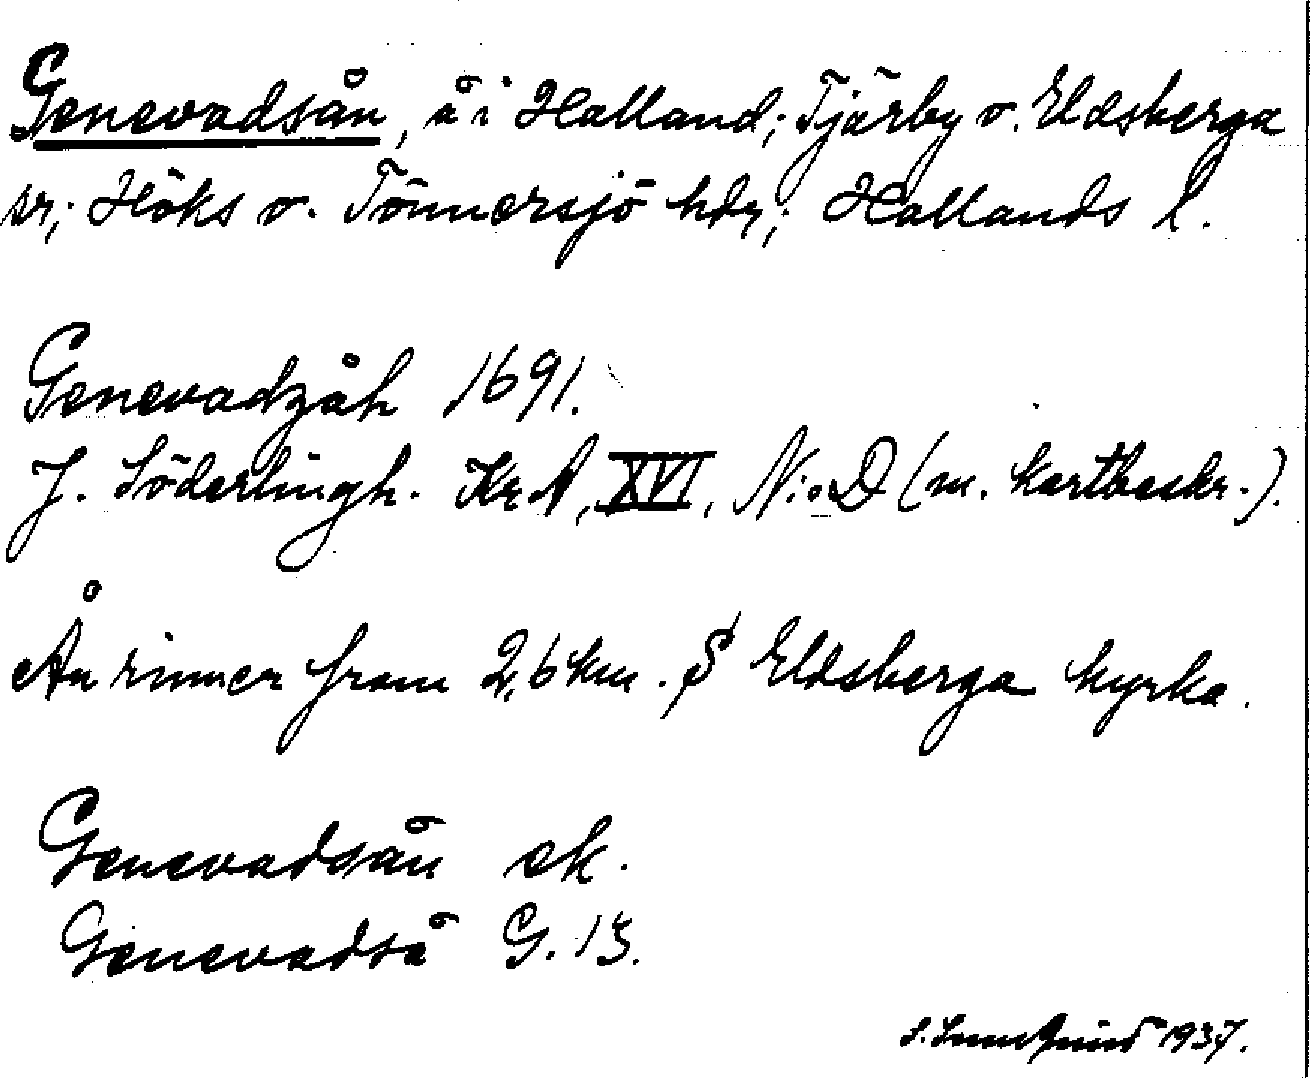 Genevadsån, å i Halland; Tjärby o. Eldsberga
sr; Höks o. Tönnersjö hdr; Hallands l.
Genevadzåh 1691.
J. Söderlingh. KrA, XVI, N:o D (m. kartbeskr.).
Ån rinner fram 2,6 km. S Eldsberga kyrka.
Genevadsån ek.
Genevadså G. 13.
1937.